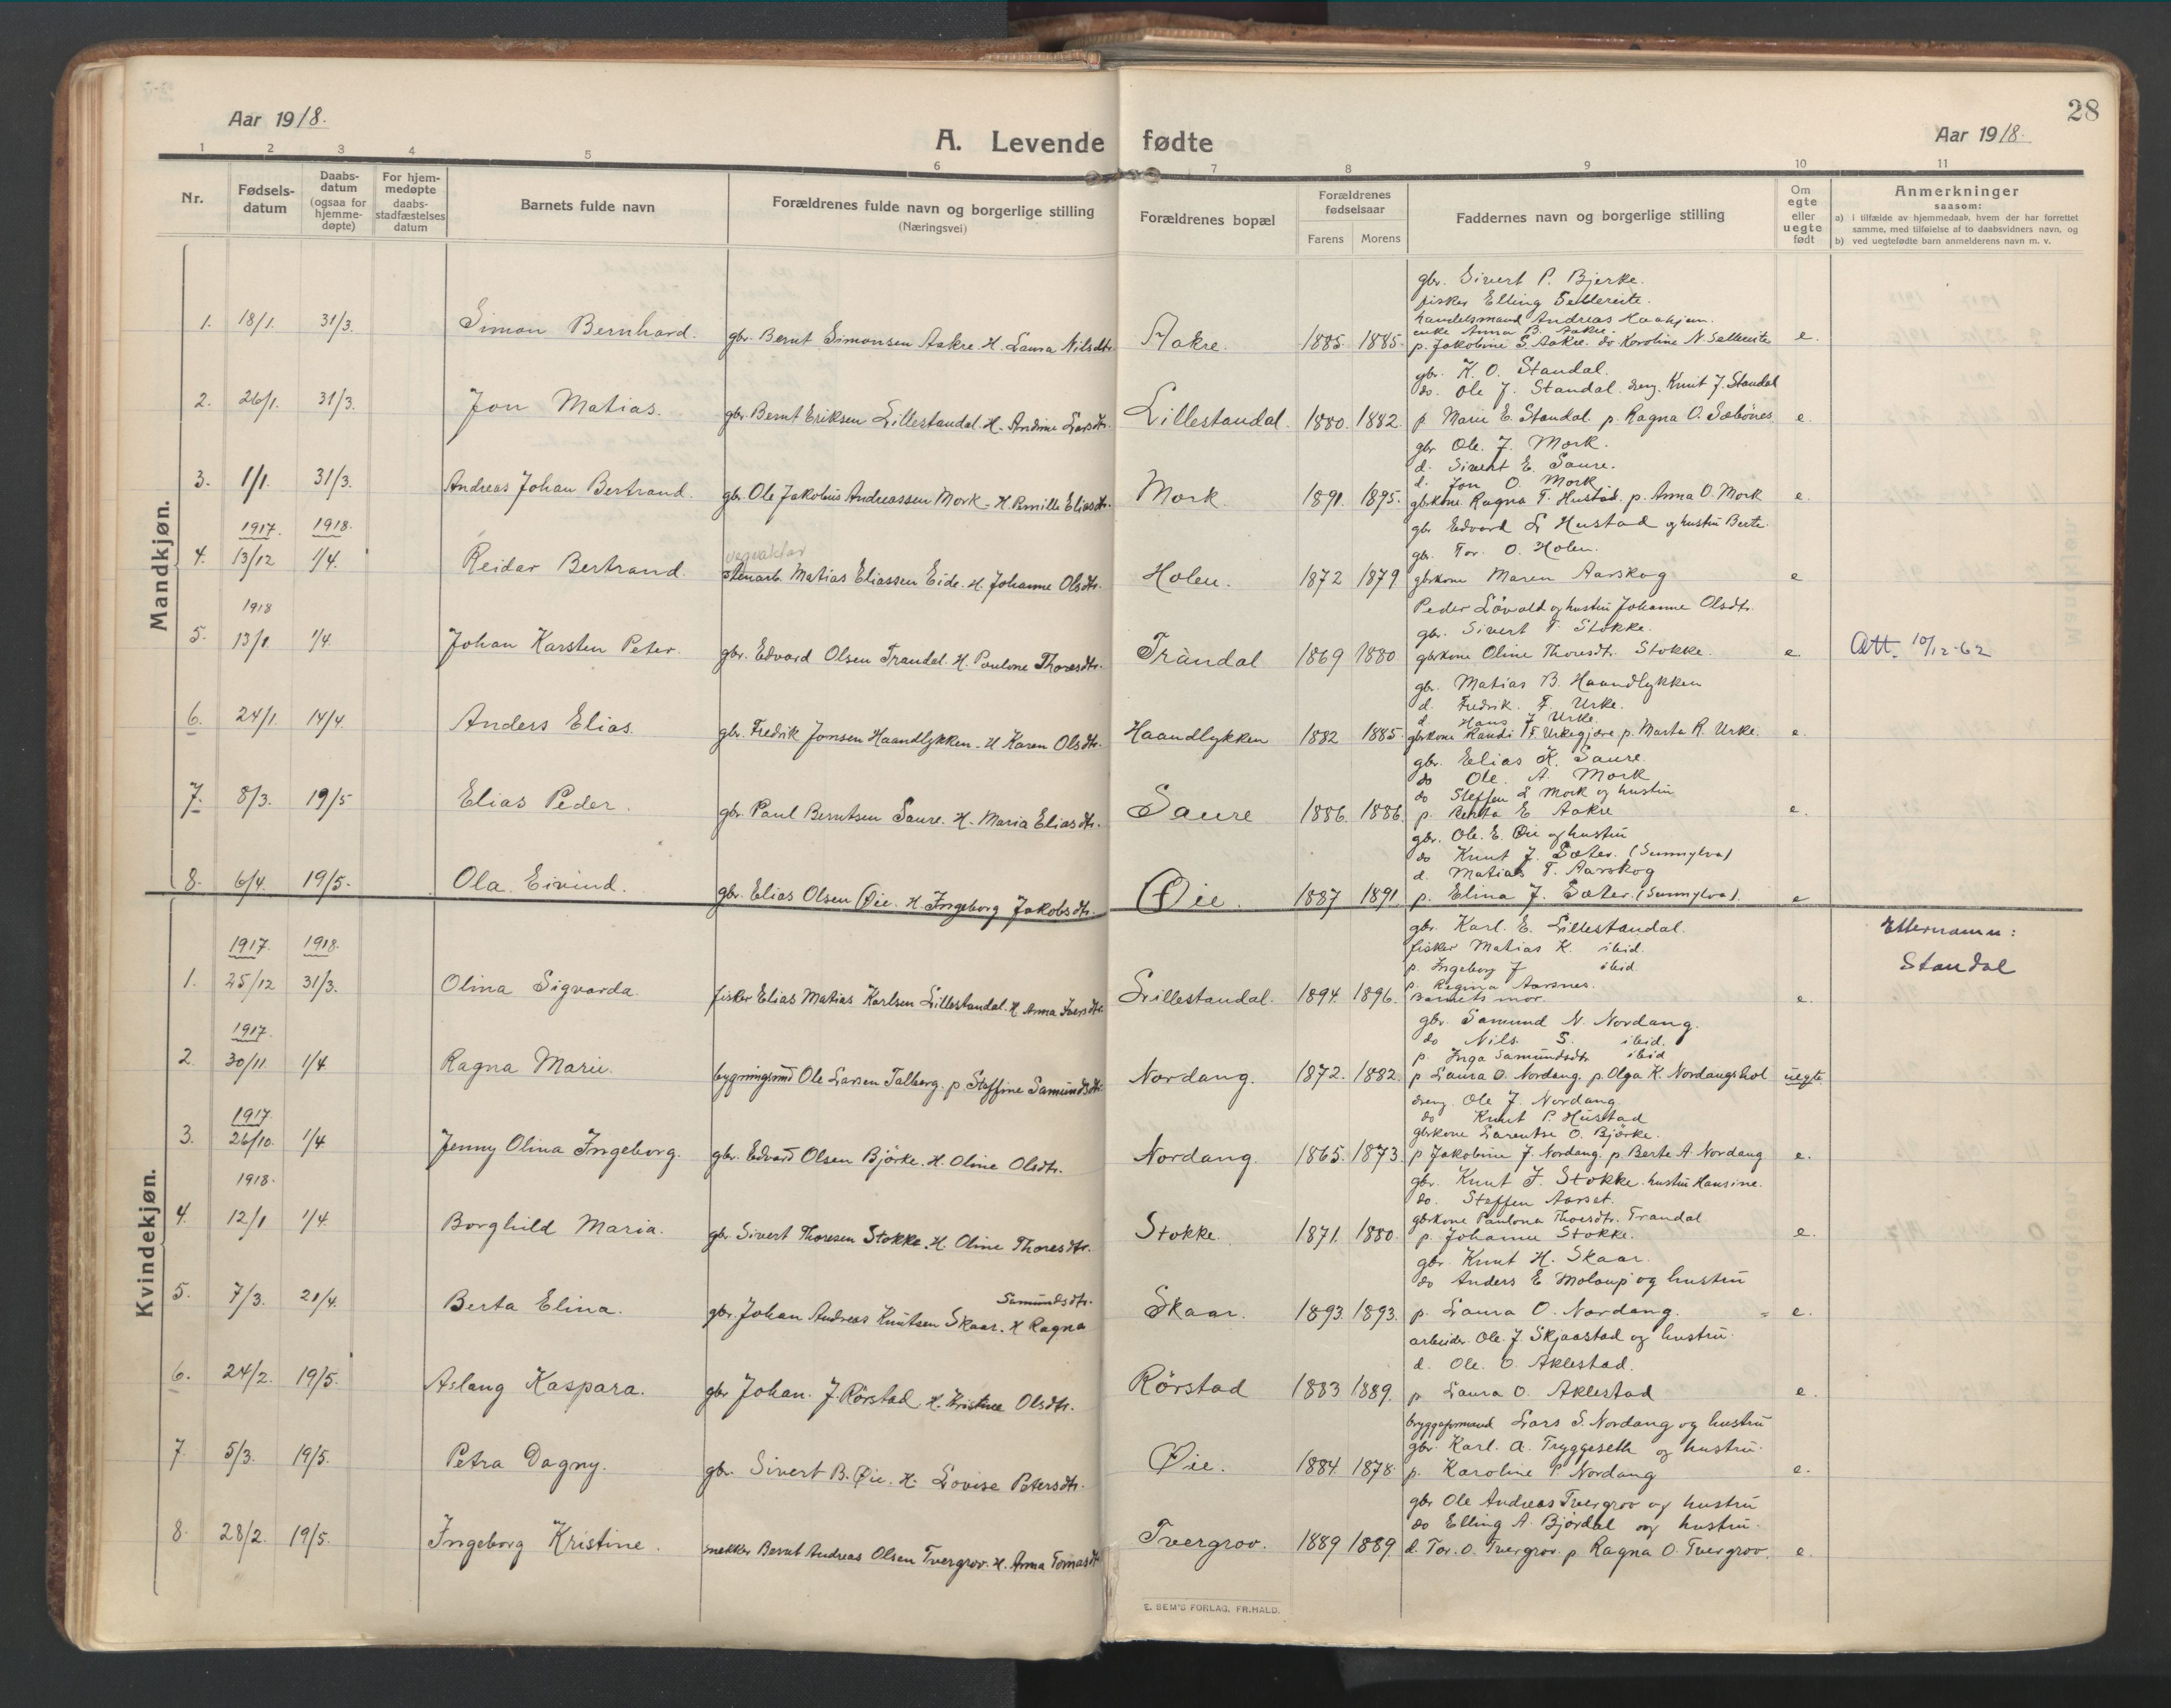 28
Aar 1918.
A. Levende fødte
Aar 1918.
1 2 3 4 5 6 7 8 9 10 11
Nr.
Fødsels-datum
Daabs-datum (ogsaa for hjemme-døpte)
For hjem-medøpte daabs-stadfæstelses datum
Barnets fulde navn
Forældrenes fulde navn og borgerlige stilling
(Næringsvei)
Forældrenes bopæl
Forældrenes fødselsaar
Farens Morens
Faddernes navn og borgerlige stilling
Om egte eller uegte født
Anmerkninger
saasom:
a) i tilfælde av hjemmedaab, hvem der har forrettet samme, med tilføielse af to daabsvidners navn, og
b) ved uegtefødte barn anmelderens navn m. v.
Mandkjøn.
gbr. Sivert P. Bjerke.
fisker Elling Sellereite.
handelsmand Andreas Haahjem.
enke Anna B. Aakre.
1. 18/1. 31/3. Simon Bernhard. gbr. Bernt Simonsen Aakre. H. Laura Nilsdtr. Aakre. 1885. 1885. p. Jakobine S. Aakre. do Karoline N. Sellereite e.
gbr. K. O. Standal.
do. Ole J. Standal. dreng. Knut J. Standal
2. 26/1. 31/3. Jon Matias. gbr. Bernt Eriksen Lillestandal. H. Andrine Larsdtr. Lillestandal. 1880. 1882. p. Marie E. Standal. p. Ragna O. Sæbönes. e.
gbr. Ole. J. Mork.
d. Sivert E. Saure.
d. Jon O. Mork
3. 1/1. 31/3. Andreas Johan Bertrand. gbr. Ole Jakobus Andreassen Mork. H. Pernille Eliasdtr. Mork. 1891. 1895. gbrkone. Ragna T. Hustad. p. Anna O. Mork e.
1917. 1918.
gbr Edvard L Hustad og hustru Berte.
gbr. Tor. O. Holen.
vegvaktar
4. 13/12 1/4. Reidar Bertrand. Stenarb. Matias Eliassen Eide. H. Johanne Olsdtr. Holen. 1872 1879 gbrkone Maren Aarskog e
1918
Peder Lövold og hustru Johanne Olsdtr.
gbr. Sivert T. Stokke.
5. 13/1. 1/4. Johan Karsten Peter. gbr. Edvard Olsen Trandal. H. Paulone Thoresdtr. Trandal 1869 1880 gbrkone Oline Thoresdtr. Stokke. e Att. 10/12-62
gbr. Matias B. Haandlykken
d. Fredrik. F. Urke.
d. Hans J Urke.
6. 24/1. 14/4. Anders Elias. gbr. Fredrik Jonsen Haandlykken. H Karen Olsdtr. Haandlykken 1882 1885. gbrkone Randi F. Urkegjære p. Marta R. Urke. e.
gbr. Elias K. Saure.
do Ole. A Mork
do Steffen L Mork og hustru
7. 8/3. 19/5 Elias Peder. gbr. Paul Berntsen Saure. H. Maria Eliasdtr. Saure 1886. 1886. p. Berta E Aakre e.
gbr. Ole. E. Øie og hustru
do Knut J. Sæter. (Sunnylva)
d. Matias T. Aarskog
8. 6/4. 19/5. Ola Eivind. gbr. Elias Olsen Øie. H. Ingeborg Jakobsdtr. Øie. 1887 1891. p. Elina J. Sæter. (Sunnylva). e
Kvindekjøn.
1917. 1918.
gbr. Karl. E. Lillestandal.
fisker Matias K. ibid.
p. Ingeborg J ibid.
p. Regina Aarsnes.
Etternamn:
Standal
1. 25/12 31/3. Olina Sigvarda. fisker Elias Matias Karlsen Lillestandal. H Anna Iversdtr. Lillestandal. 1894. 1896. Barnets mor. e.
1917.
gbr. Samund N. Nordang.
do Nils. S. ibid.
p. Inga Samundsdtr. ibid
2. 30/11. 1/4 Ragna Marie. bygningsmd Ole Larsen Talberg. p Staffine Samundsdtr. Nordang. 1872. 1882. p Laura O. Nordang. p. Olga K. Nordangshol uegte
1917.
dreng Ole J. Nordang.
do Knut P. Hustad
gbrkone Larentse O. Björke.
3. 26/10. 1/4 Jenny Olina Ingeborg. gbr. Edvard Olsen Björke. H. Oline Olsdtr. Nordang 1865. 1873. p Jakobine J. Nordang. p. Berte A. Nordang e.
1918.
gbr. Knut J. Stokke. hustru Hansine.
do. Staffen Aarset.
gbrkone Paulona Thoresdtr. Trandal
4. 12/1 1/4. Borghild Maria. gbr Sivert Thoresen Stokke. H. Oline Thoresdtr. Stokke. 1871. 1880. p. Johanne Stokke. e.
gbr. Knut H. Skaar.
do Anders E. Molaup og hustru
5. 7/3. 21/4. Berta Elina. gbr. Johan Andreas Knutsen Skaar. H Ragna Samundsdtr. Skaar. 1893. 1893. p. Laura O. Nordang. e.
arbeider. Ole. J. Skjaastad og hustru.
d. Ole. O. Aklestad.
6. 24/2. 19/5. Aslaug Kaspara. gbr Johan. J. Rörstad. H. Kristine Olsdtr. Rörstad 1883 1889. p. Laura O. Aklestad e.
bryggeformand Lars S. Nordang og hustru
gbr. Karl. A. Tryggeseth og hustru.
7. 5/3. 19/5. Petra Dagny. gbr. Sivert B. Øie. H. Lovise Petersdtr. Øie. 1884. 1878. p. Karoline P Nordang e.
gbr Ole Andreas Tvergrov og hustru
do Elling A. Bjørdal og hustru.
8. 28/2. 19/5. Ingeborg Kristine. snekker Bernt Andreas Olsen Tvergrov. H. Anna Tomasdtr Tvergrov. 1889 1889. d. Tor. O. Tvergrov. p Ragna O. Tvergrov. e.
E. SEM'S FORLAG. FR.HALD.